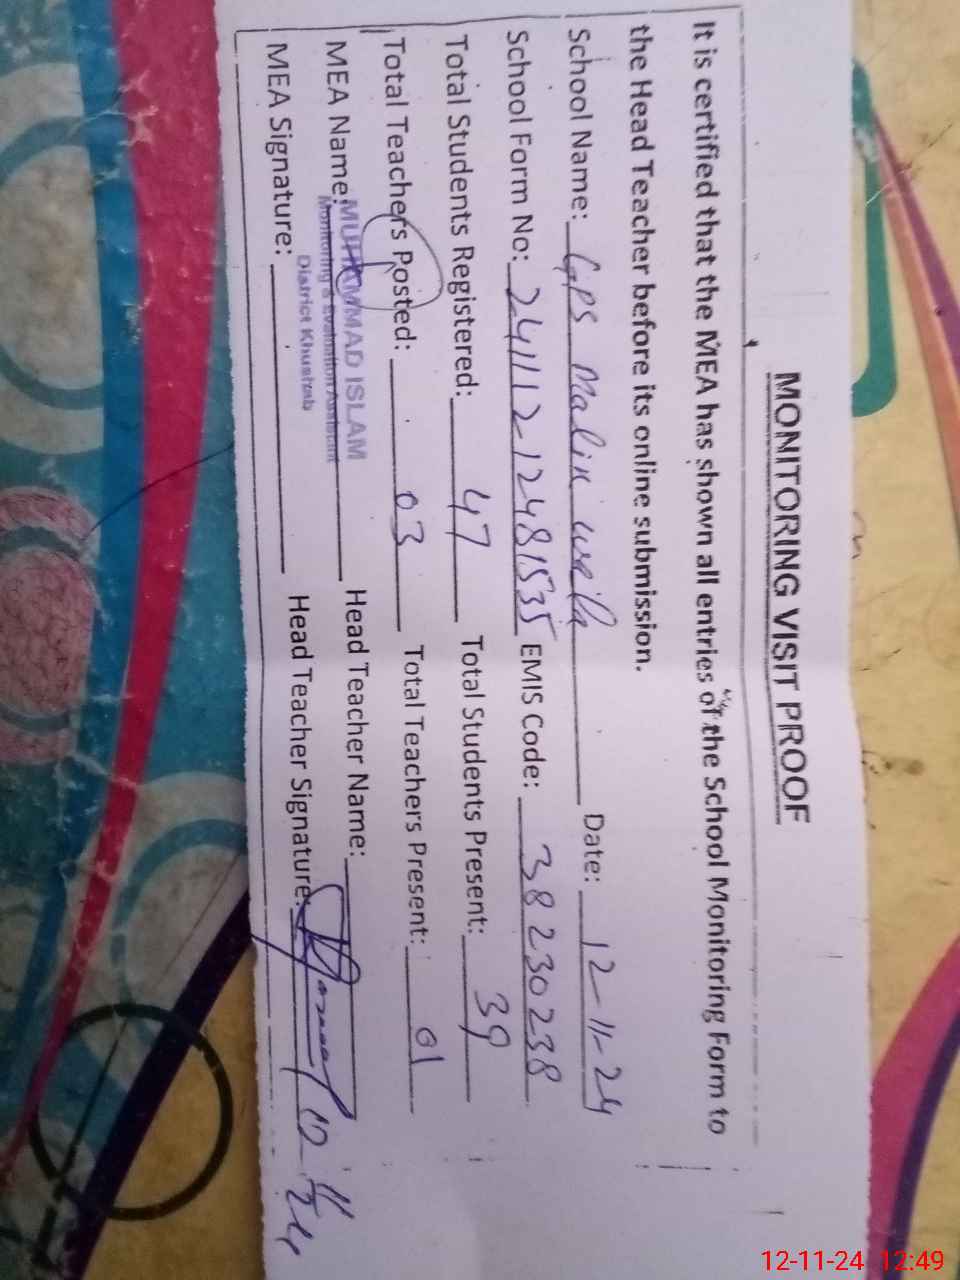 MONITORING VISIT PROOF
It is certified that the MEA has shown all entries of the School Monitoring Form to
the Head Teacher before its online submission.
School Name: GPS Malik wala Date: 12-11-24
School Form No: 241112-12481535 EMIS Code: 38230238
Total Students Registered: 47 Total Students Present: 39
Total Teachers Posted: 03 Total Teachers Present: 01
MEA Name: MUHAMMAD ISLAM Head Teacher Name:
Monitoring & Evaluation Assistant
District Khushab
MEA Signature: Head Teacher Signature: 12-11-24
12-11-24 12:49